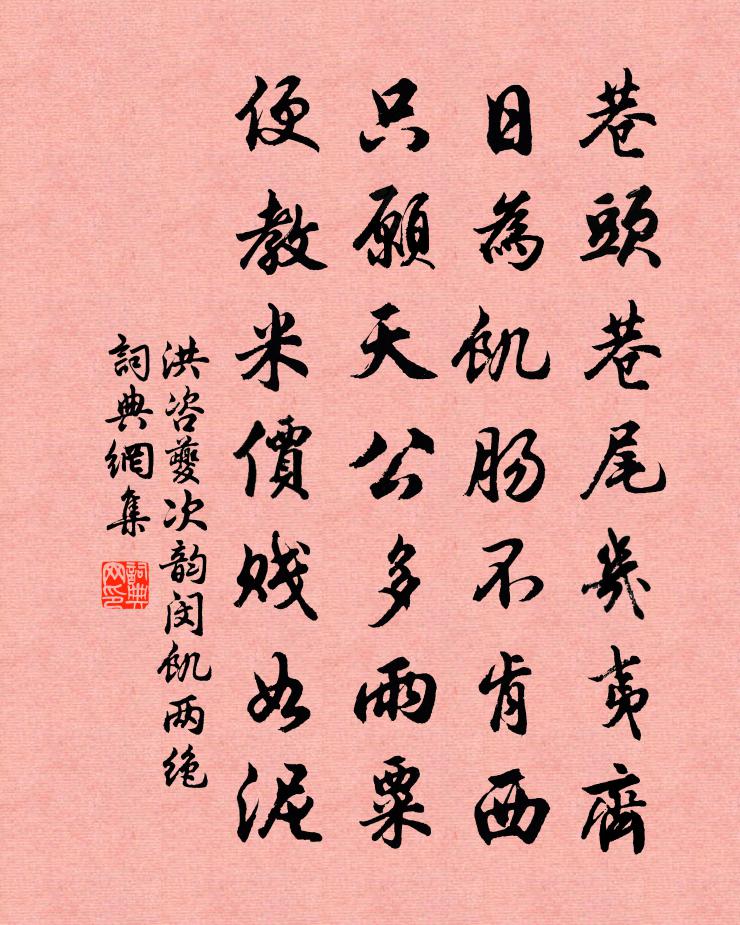 巷頭巷尾幾夷齊
日為飢腸不肯西
只願天公多雨粟
便教米價賤如泥
洪咨夔次韵闵飢两绝
詞典網集
詞典网印